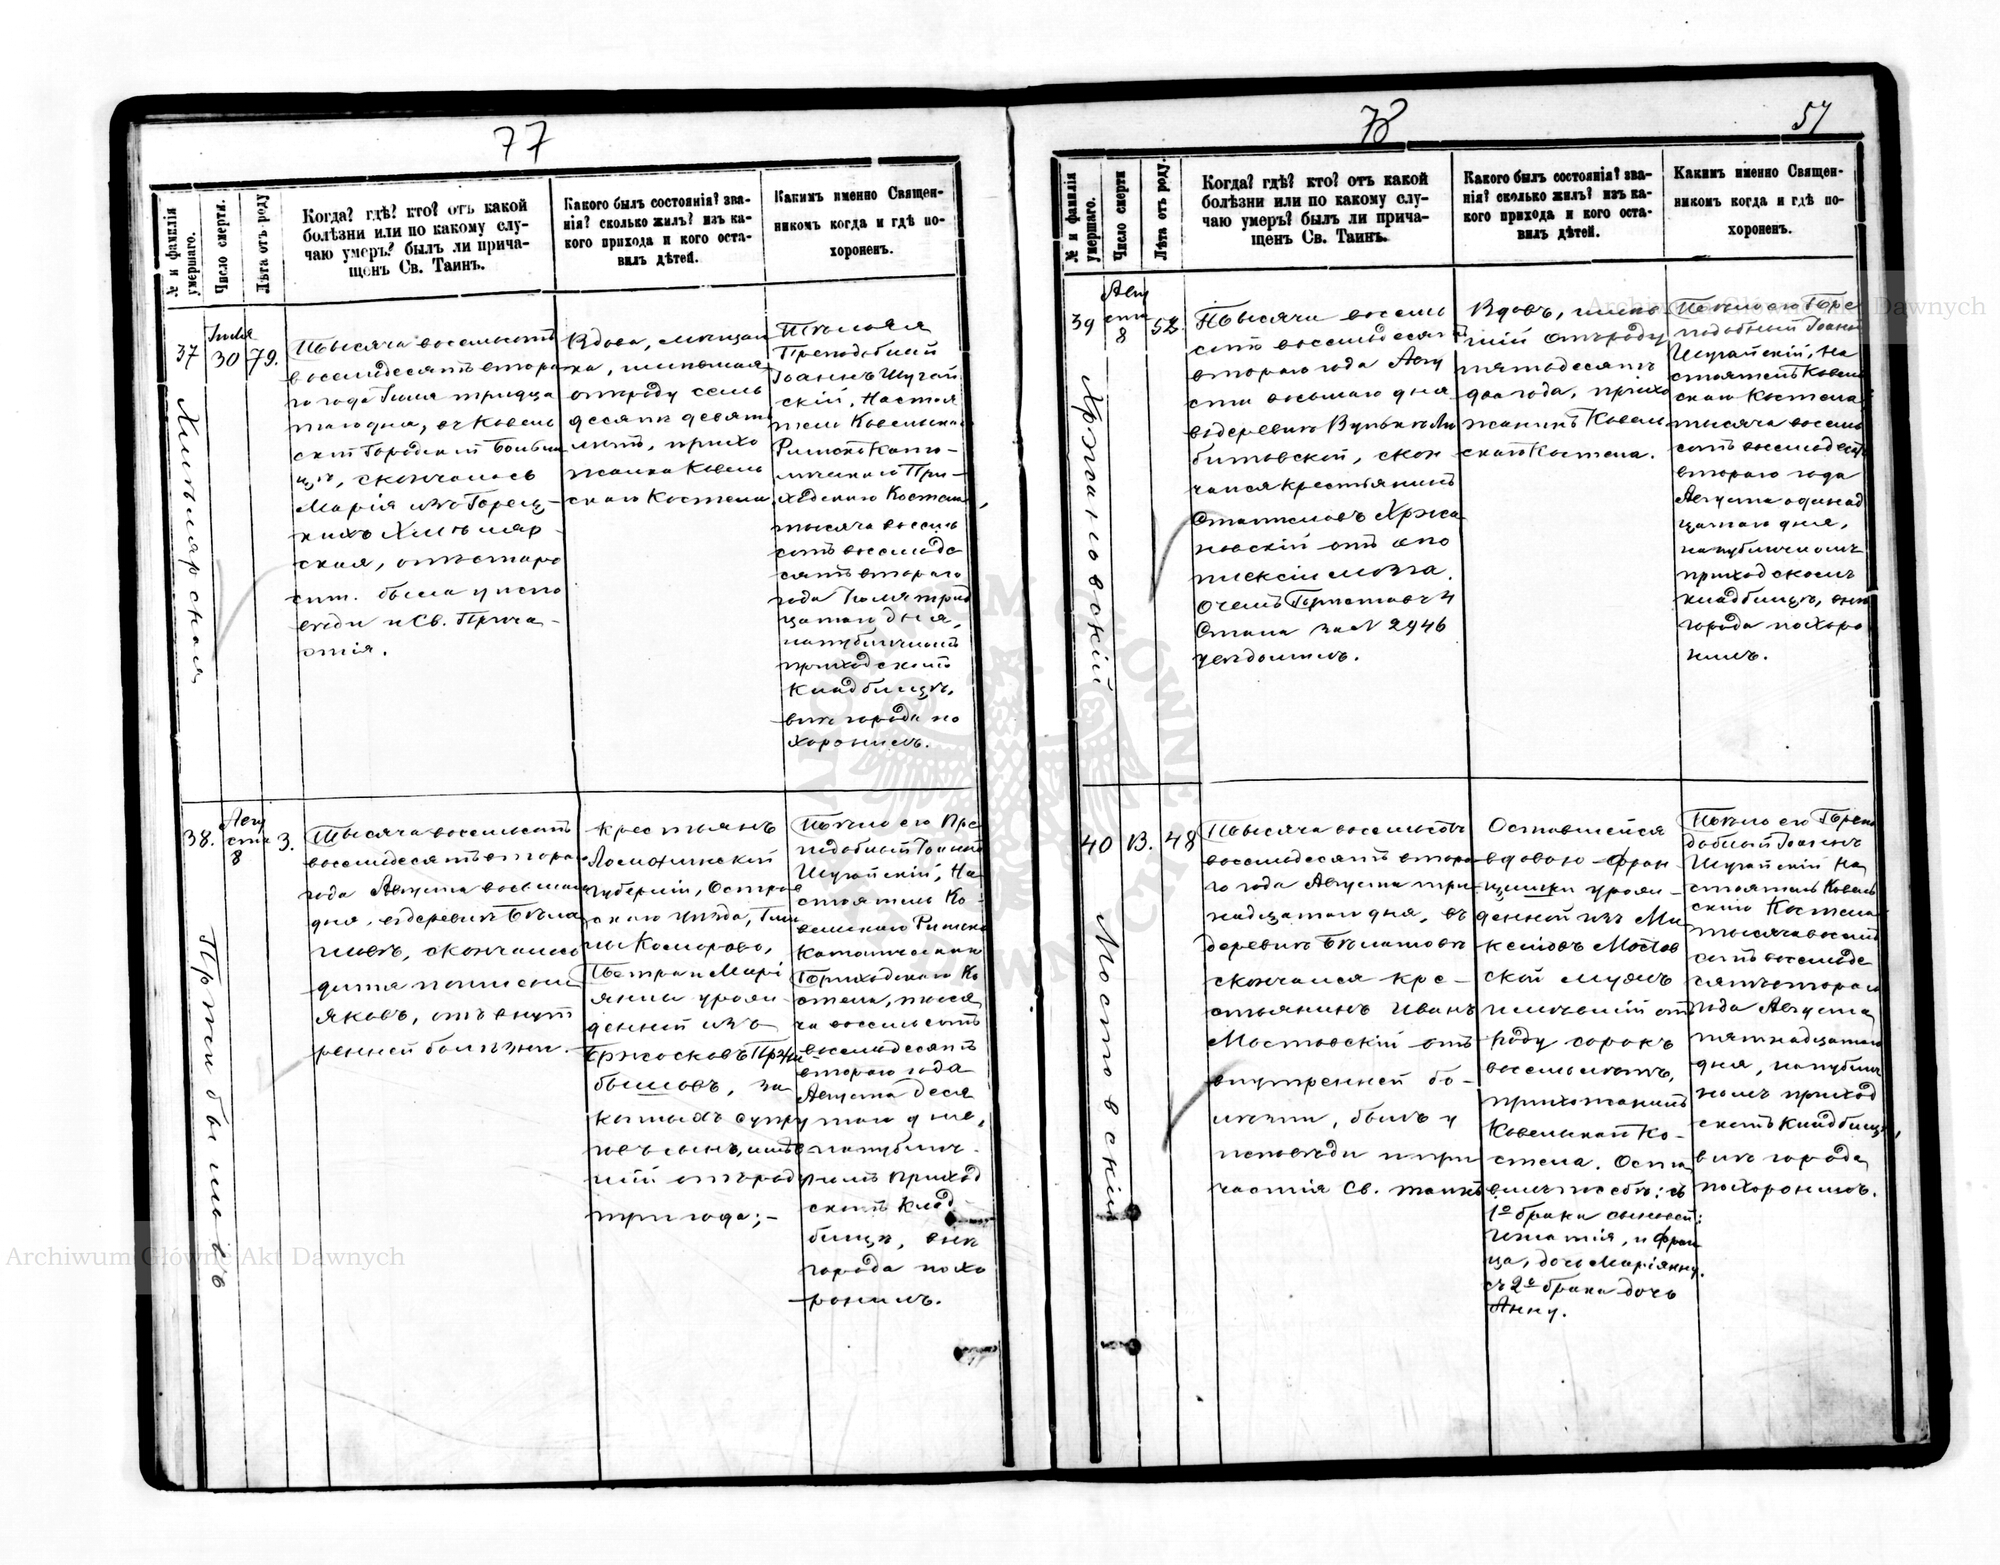 77
№ и фамилія умершаго.
Число смерти.
Лѣта отъ роду
Когда? гдѣ? кто? отъ какой
болѣзни или по какому слу-
чаю умеръ? былъ ли прича-
щенъ Св. Таинъ.
Какого былъ состоянія? зва-
нія? сколько жилъ? изъ ка-
кого прихода и кого оста-
вилъ дѣтей.
Каким именно Священ-
никомъ когда и гдѣ по-
хороненъ.
37
Хильмярская
Іюля
30
79.
Тысяча восемьсотъ
восемдесятъ второ
го года Іюля тридца
таго дня, въ Ковель
ской Городской Больни
цѣ, скончалась
Марія изъ Горец-
кихъ Хильмяр-
ская, отъ старо
сти. была у испо
вѣди и Св. Прича-
стія.
Вдова, мѣщан
ка, имѣвшая
отъ роду семь
десятъ девять
лѣтъ, прихо
жанка Ковель
скаго Костела
Тѣло ея
Преподобный
Іоаннъ Шугай
скій, Настоя
тель Ковельскаго
Римско Като-
лическаго При-
ходскаго Костела,
тысяча восемь
сотъ восемьде
сятъ втораго
года Іюля трид
цатаго дня,
на публичномъ
приходскомъ
Кладбищѣ,
внѣ города по
хоронилъ.
38.
Пржибышъ
Авгу
ста
8
3.
Тысяча восемьсотъ
восемдесятъ второ
года Августа восьмаго
дня. въ деревнѣ Бѣла
шовъ, скончалось
дитя
яковъ, отъ внут
ренней болѣзни.
крестьянъ
Ломжинской
Губерніи, Остров
скаго уѣзда, Гми
ны Коморово,
Петра и Марі
янны урож-
денной изъ
Бржосковъ Прж
бышовъ, за
конныхъ супру
говъ сынъ, имѣв
шій отъ роду
три года;-
Тѣло его Пре
подобный Іоаннъ
Шугайскій, На
стоятель Ко-
вельскаго Римско
Католическаго
Приходскаго Ко
стела, тыся
ча восемьсотъ
восемьдесятъ
втораго года
Августа Деся
таго дня,
на публич-
номъ Приход
скомъ Клад
бищѣ, внѣ
города похо
ронилъ.
78
57
№ и фамилія умершаго.
Число смерти
Лѣта отъ роду.
Когда? гдѣ? кто? отъ какой
болѣзни или по какому слу-
чаю умеръ? былъ ли прича-
щенъ Св. Таинъ.
Какого былъ состоянія? зва-
нія? сколько жилъ? изъ ка-
кого прихода и кого оста-
вилъ дѣтей.
Каким именно Священ-
никомъ когда и гдѣ по-
хороненъ.
39
Хржановскій
Авгу
ста
8
52
Тысяча восемь
сотъ восемьдесятъ
втораго года Авгу
ста восьмаго дня
въ деревнѣ Вулькѣ Лю
битовской, скон
чался крестьянинъ
Станиславъ Хржа
новскій отъ апо
плексіи мозга.
О чемъ Приставъ 4
Стана за N 2946
увѣдомилъ.
Вдовъ, имѣв
шій отъ роду
пятьдесятъ
два года, прихо
жанинъ Ковель
скаго Костела.
Тѣло его Пре
подобный Іоаннъ
Шугайскій, На
стоятель Ковель
скаго Костела
тысяча восемь
сотъ восемьдесятъ
втораго года
Августа одинад
цатаго дня,
на публичномъ
приходскомъ
кладбищѣ, внѣ
города похоро
нилъ.
40
Мостовскій
13.
48
Тысяча восемьсотъ
восемьдесятъ второ
го года Августа три
надцатаго дня, въ
деревнѣ Бѣлашовѣ
скончался кре-
стьянинъ Иванъ
Мостовскій отъ
внутренней бо-
лѣзни, былъ у
исповѣди и при
частія Св. таинъ
Оставшейся
вдовою Фран
цишки урож-
денной изъ Ма
Мостов
ской мужъ
имѣвшій отъ
роду сорокъ
восемь лѣтъ,
прихожанинъ
Ковельскаго Ко-
стела. Оста
вилъ по себѣ: съ
1º брака сыновей:
Игнатія, и Фран
ца, дочь Маріянну.
съ 2º брака дочь
Анну.
Тѣло его Препо
добный Іоаннъ
Шугайскій На
стоятель Ковель
скаго Костела
тысяча восемь
сотъ восемьде
сятъ втораго
года Августа
пятнадцатаго
дня, на публич
номъ приход
скомъ Кладбищѣ,
внѣ города
похоронилъ.
Archiwum Główne Akt Dawnych
Archiwum Główne Akt Dawnych